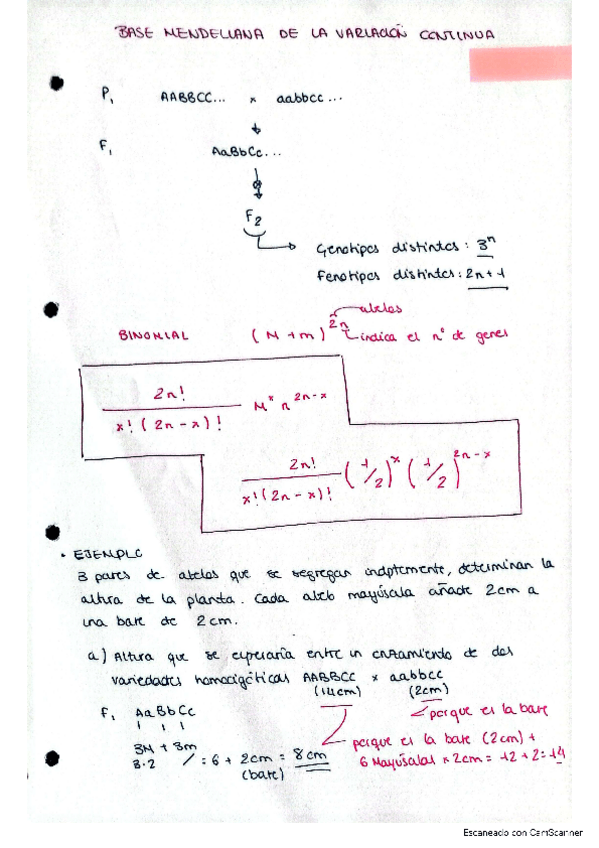 BASE MENDELIANA DE LA VARIACIÓN CONTINUA
P₁ AABBCC... × aabbcc...
F₁ AaBbCc...
F₂
Genotipos distintos: 3ⁿ
Fenotipos distintos: 2n+1
alelos
BINOMIAL (M+m)²ⁿ indica el nº de genes
2n! / x!(2n-x)! Mˣ n²ⁿ⁻ˣ
2n! / x!(2n-x)! (1/2)ˣ (1/2)²ⁿ⁻ˣ
• EJEMPLO
3 pares de alelos que se segregan indptemente, determinan la
altura de la planta. Cada alelo mayúscula añade 2cm a
una base de 2cm.
a) Altura que se esperaría entre un cruzamiento de dos
variedades homocigóticas AABBCC × aabbcc
(14cm) (2cm)
F₁ AaBbCc
porque es la base
3M + 3m
3·2 : 6 + 2cm = 8cm
(base)
porque es la base (2cm) +
6 Mayúsculas × 2cm = 12+2=14
Escaneado con CamScanner